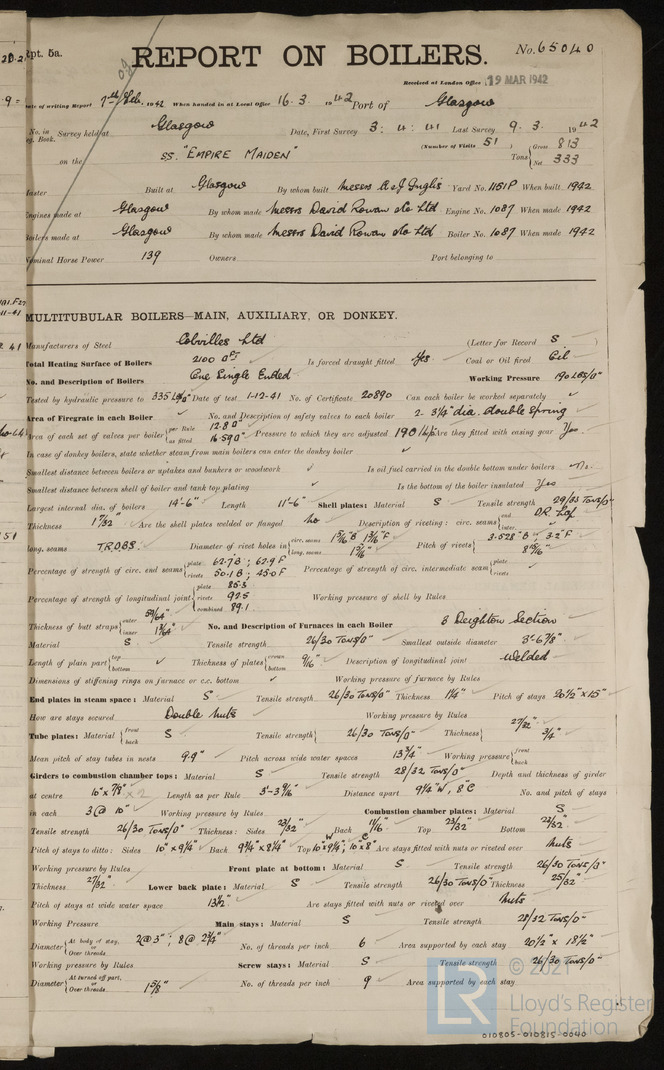 Rpt. 5a.
REPORT ON BOILERS.
No. 65040
Received at London Office 19 MAR 1942
Date of writing Report 7th Feb. 1942 When handed in at Local Office 16.3.1942 Port of Glasgow
No. in Survey held at Glasgow Date, First Survey 3.4.41 Last Survey 9.3.1942
Reg. Book.
(Number of Visits 51) Gross 813
on the SS. "EMPIRE MAIDEN" Tons Net 333
Master Built at Glasgow By whom built Messrs A & J Inglis Yard No. 1151P When built 1942
Engines made at Glasgow By whom made Messrs David Rowan & Co Ltd Engine No. 1087 When made 1942
Boilers made at Glasgow By whom made Messrs David Rowan & Co Ltd Boiler No. 1087 When made 1942
Nominal Horse Power 139 Owners Port belonging to
MULTITUBULAR BOILERS—MAIN, AUXILIARY, OR DONKEY.
Manufacturers of Steel Colvilles Ltd (Letter for Record S)
Total Heating Surface of Boilers 2100 Is forced draught fitted Yes Coal or Oil fired Oil
No. and Description of Boilers One Single Ended Working Pressure 190 LBS/□"
Tested by hydraulic pressure to 335 Date of test 1-12-41 No. of Certificate 20890 Can each boiler be worked separately ✓
Area of Firegrate in each Boiler ✓ No. and Description of safety valves to each boiler 2. 3¼" dia. double spring
Area of each set of valves per boiler per Rule 12.8□" as fitted 16.59□" Pressure to which they are adjusted 190 Are they fitted with easing gear Yes
In case of donkey boilers, state whether steam from main boilers can enter the donkey boiler ✓
Smallest distance between boilers or uptakes and bunkers or woodwork ✓ Is oil fuel carried in the double bottom under boilers No.
Smallest distance between shell of boiler and tank top plating ✓ Is the bottom of the boiler insulated Yes
Largest internal dia. of boilers 14'-6" Length 11'-6" Shell plates: Material S Tensile strength 29/33 TONS/□"
Thickness 1 7/32 Are the shell plates welded or flanged No Description of riveting: circ. seams end D.R. Lap inter. ✓
long. seams T.R.D.B.S. Diameter of rivet holes in circ. seams 1 5/16 B 1 3/16 F long. seams 1 3/16" Pitch of rivets 3.528" B 3.2" F 8 15/16"
Percentage of strength of circ. end seams plate 62.7B; 62.9F rivets 50.1B; 45.0F Percentage of strength of circ. intermediate seam plate rivets
Percentage of strength of longitudinal joint plate 85.3 rivets 92.5 combined 89.1 Working pressure of shell by Rules
Thickness of butt straps outer 59/64" inner 1 3/64" No. and Description of Furnaces in each Boiler 3 Deighton Section
Material S Tensile strength 26/30 TONS/□" Smallest outside diameter 3'-6 7/8"
Length of plain part top bottom ✓ Thickness of plates crown bottom 9/16" Description of longitudinal joint Welded
Dimensions of stiffening rings on furnace or c.c. bottom ✓ Working pressure of furnace by Rules
End plates in steam space: Material S Tensile strength 26/30 TONS/□" Thickness 1¼" Pitch of stays 20½" x 15"
How are stays secured Double Nuts Working pressure by Rules
Tube plates: Material front back S Tensile strength 26/30 TONS/□" Thickness 27/32" 3/4"
Mean pitch of stay tubes in nests 9.9" Pitch across wide water spaces 13¾" Working pressure front back
Girders to combustion chamber tops: Material S Tensile strength 28/32 TONS/□" Depth and thickness of girder
at centre 10" x 7/8" x2 Length as per Rule 3'-3 9/16" Distance apart 9¼" W, 8" C No. and pitch of stays
in each 3 @ 10" Working pressure by Rules Combustion chamber plates: Material S
Tensile strength 26/30 TONS/□" Thickness: Sides 23/32" Back 11/16" Top 23/32" Bottom 23/32"
Pitch of stays to ditto: Sides 10" x 9¼" Back 9¾" x 8¼" Top W 10"x9¼"; C 10"x8" Are stays fitted with nuts or riveted over Nuts
Working pressure by Rules Front plate at bottom: Material S Tensile strength 26/30 TONS/□"
Thickness 27/32" Lower back plate: Material S Tensile strength 26/30 TONS/□" Thickness 25/32"
Pitch of stays at wide water space 13½" Are stays fitted with nuts or riveted over Nuts
Working Pressure Main stays: Material S Tensile strength 28/32 TONS/□"
Diameter At body of stay, or Over threads 2@3"; 8@2¾" No. of threads per inch 6 Area supported by each stay 20½" x 18½"
Working pressure by Rules Screw stays: Material S Tensile strength 26/30 TONS/□"
Diameter At turned off part, or Over threads 1 5/8" No. of threads per inch 9 Area supported by each stay
LR © 2021
Lloyd's Register
Foundation
010805-010815-0040